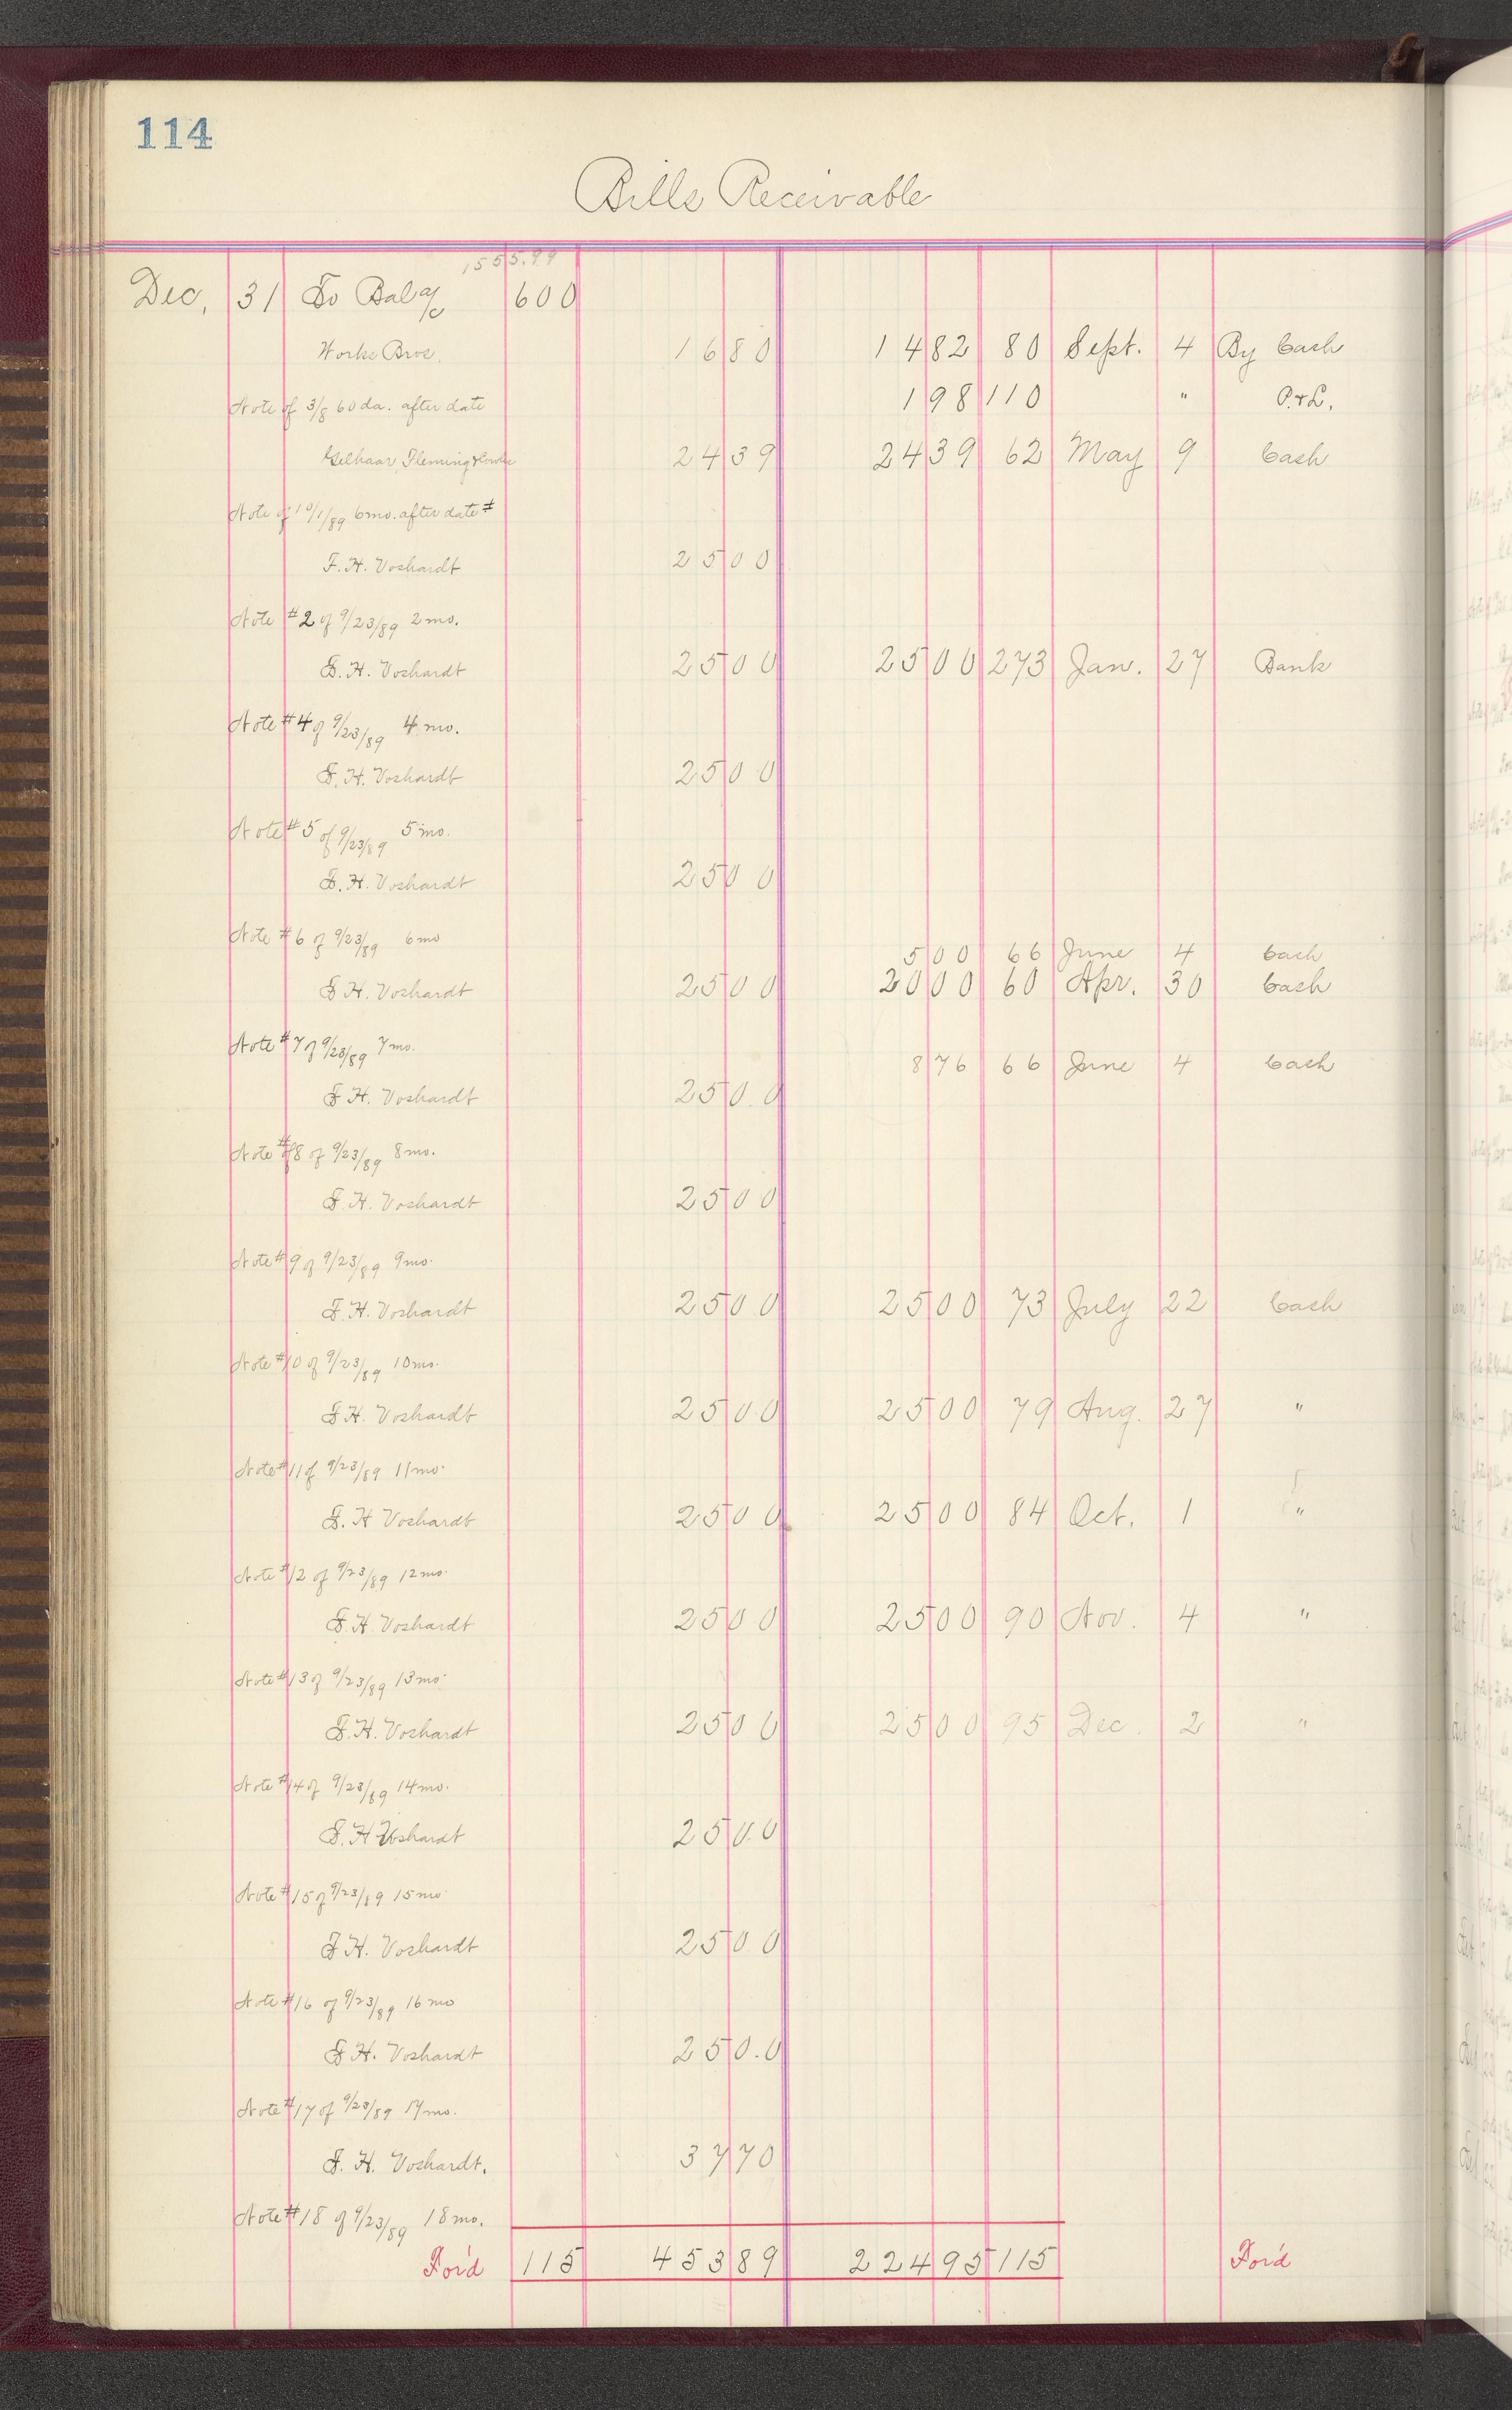 114
Bills Receivable
1555.99
Dec. 31 To Bal a/c 600
Works Bros. 1680 1482 80 Sept. 4 By Cash
Note of 3/8 60 da. after date 198 110 " P.&L.
Gelhaar Fleming & 2439 2439 62 May 9 Cash
Note of 10/1/89 6 mo. after date #
F. H. Voshardt 2500
Note #2 of 9/23/89 2 mo.
F. H. Voshardt 2500 2500 273 Jan. 27 Bank
Note #4 of 9/23/89 4 mo.
F. H. Voshardt 2500
Note #5 of 9/23/89 5 mo.
F. H. Voshardt 2500
Note #6 of 9/23/89 6 mo
500 66 June 4 Cash
F H. Voshardt 2500 2000 60 Apr. 30 Cash
Note #7 of 9/23/89 7 mo.
876 66 June 4 Cash
F H. Voshardt 2500
Note #8 of 9/23/89 8 mo.
F. H. Voshardt 2500
Note #9 of 9/23/89 9 mo.
F. H. Voshardt 2500 2500 73 July 22 Cash
Note #10 of 9/23/89 10 mo.
F H. Voshardt 2500 2500 79 Aug. 27 "
Note #11 of 9/23/89 11 mo.
F. H Voshardt 2500 2500 84 Oct. 1 "
Note #12 of 9/23/89 12 mo.
F. H. Voshardt 2500 2500 90 Nov. 4 "
Note #13 of 9/23/89 13 mo.
F. H. Voshardt 2500 2500 95 Dec. 2 "
Note #14 of 9/23/89 14 mo.
F. H Voshardt 2500
Note #15 of 9/23/89 15 mo
F H. Voshardt 2500
Note #16 of 9/23/89 16 mo
F H. Voshardt 2500
Note #17 of 9/23/89 17 mo.
F. H. Voshardt. 3770
Note #18 of 9/23/89 18 mo.
For'd 115 45389 22495 115 For'd